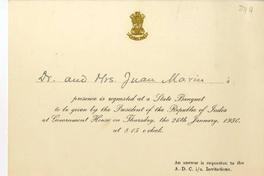 Dr. and Mrs. Juan Marin's
presence is requested at a State Banquet
to be given by the President of the Republic of India
at Government House on Thursday, the 26th January, 1950.
at 8.15 o'clock.
An answer is requested to the
A. D. C. i/c. Invitations.